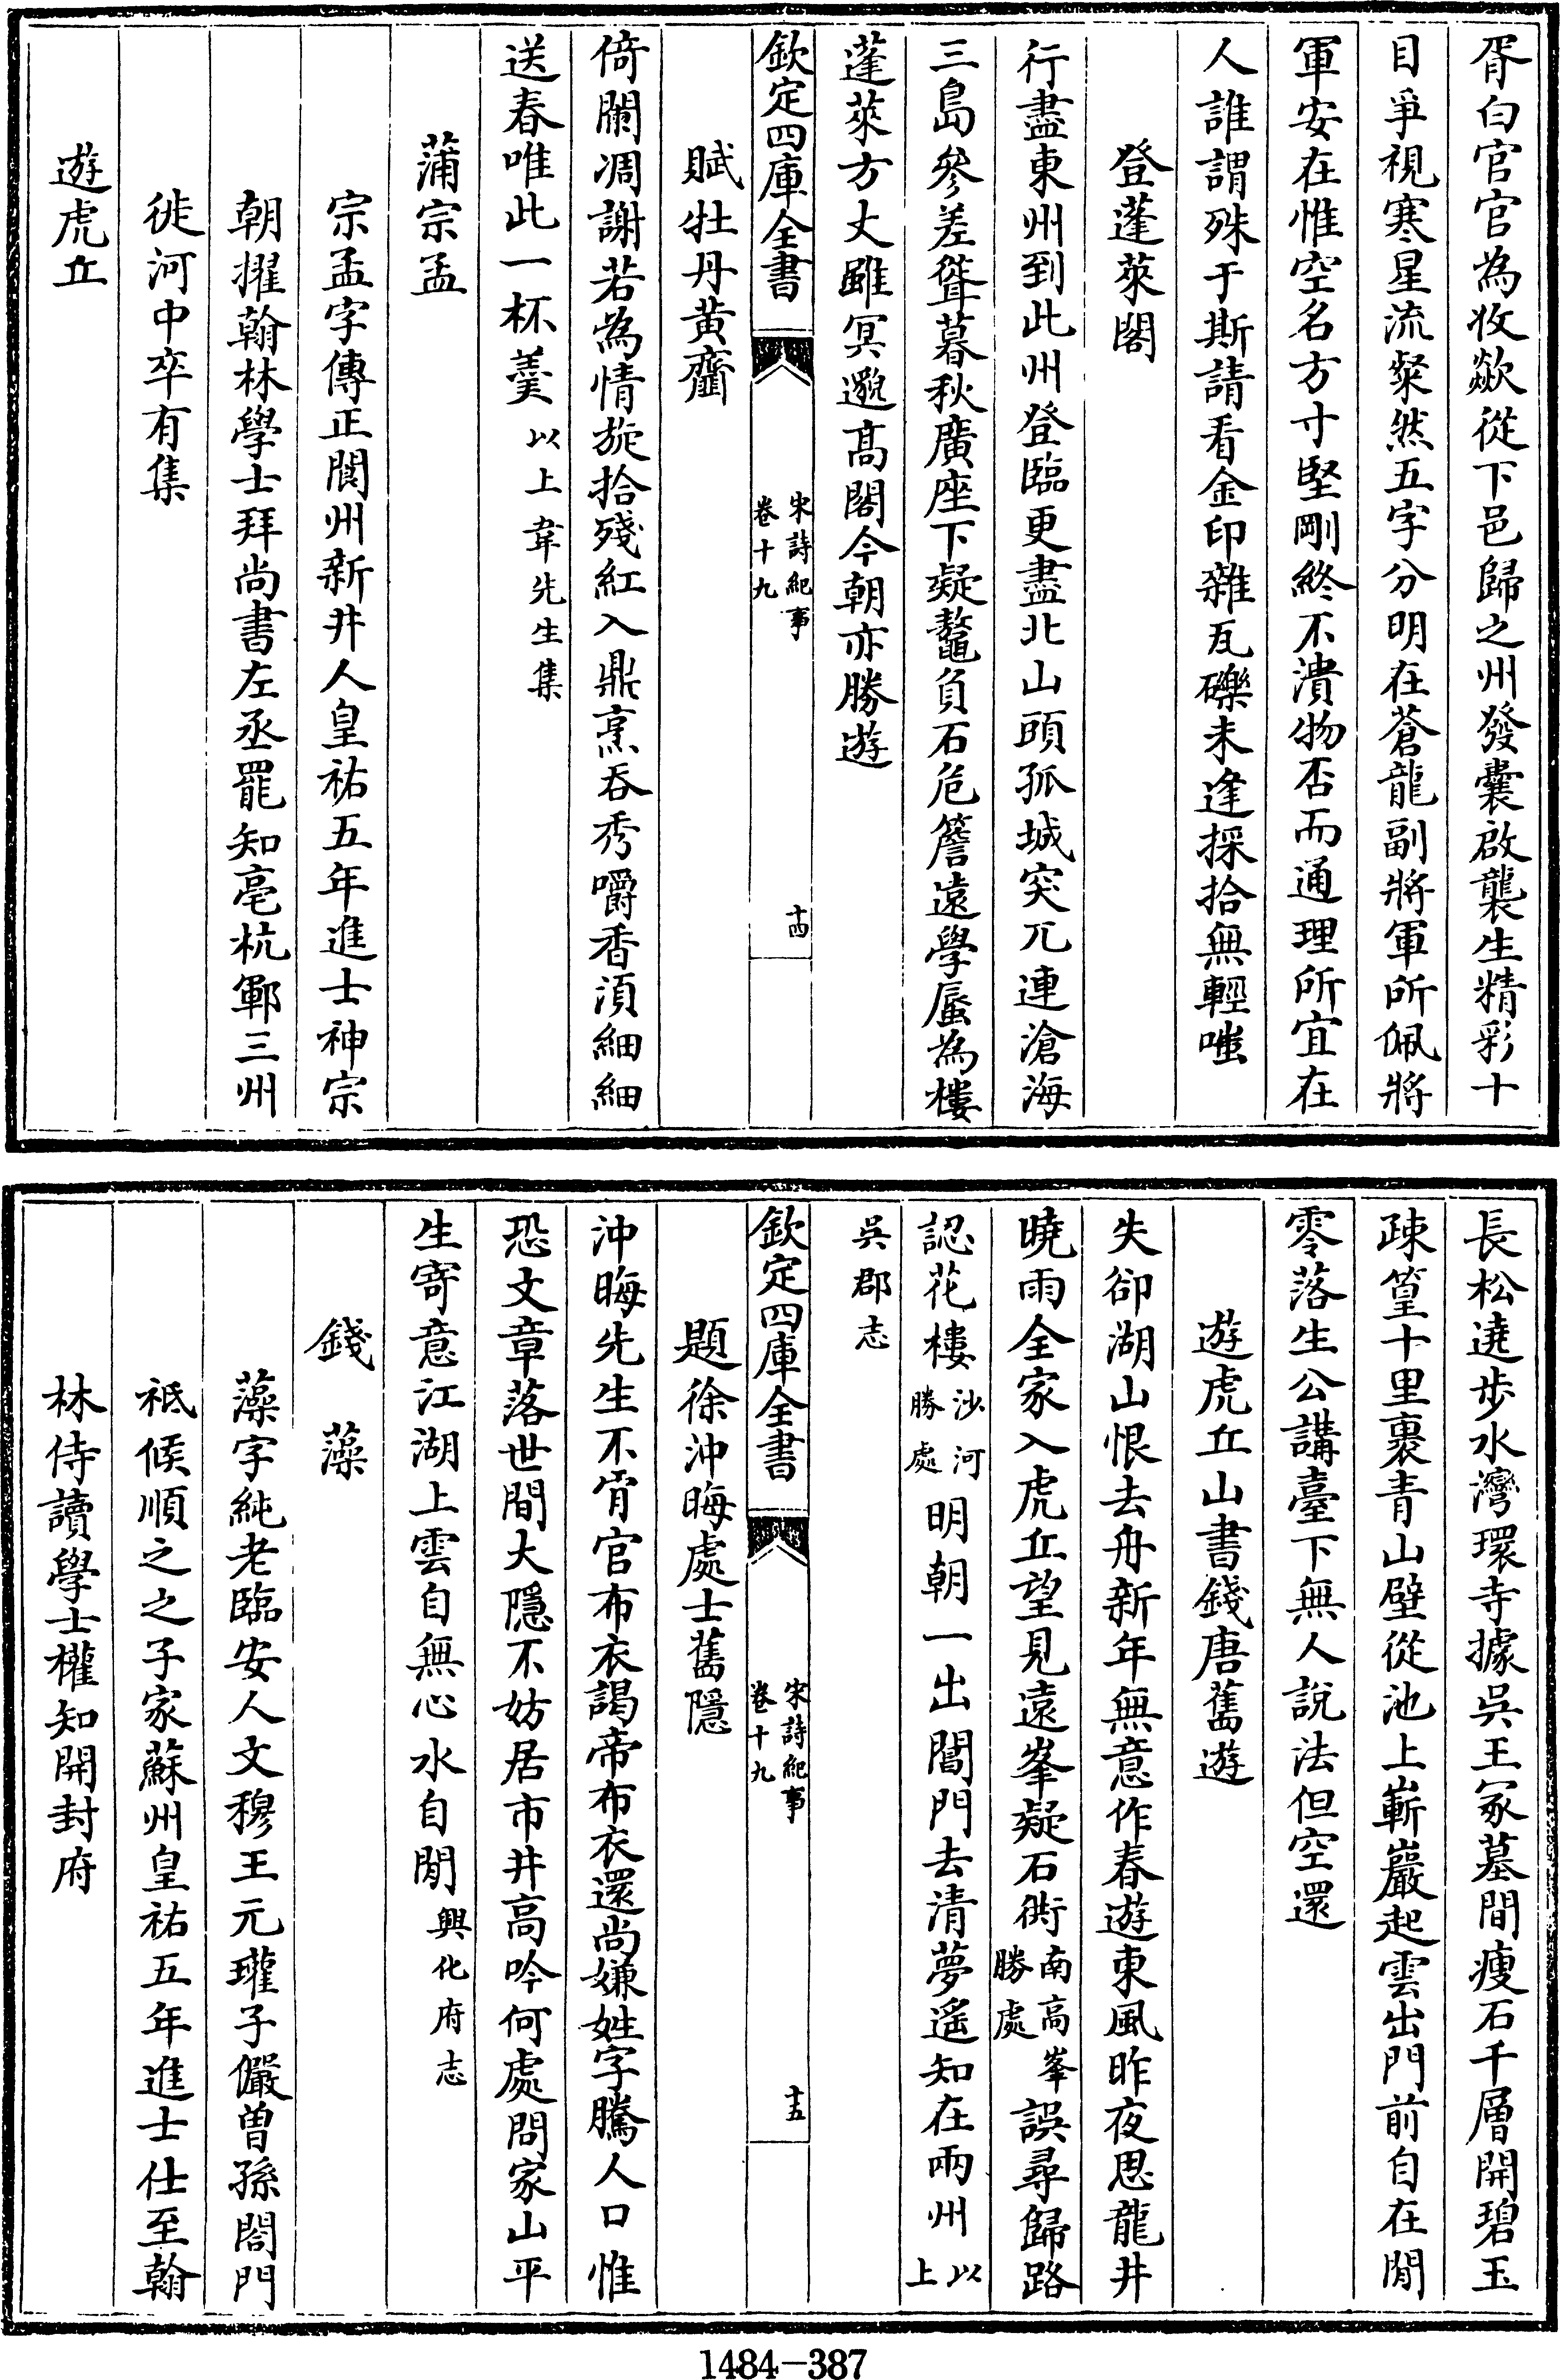 胥白官官為收歘從下邑歸之州發囊啟襲生精彩十
目爭視寒星流粲然五字分明在蒼龍副將軍所佩將
軍安在惟空名方寸堅剛終不潰物否而通理所宜在
人誰謂殊于斯請看金印雜瓦礫未逢採拾無輕嗤
登蓬萊閣
行盡東州到此州登臨更盡北山頭孤城突兀連滄海
三島參差聳暮秋廣座下疑鼇負石危簷遠學蜃為樓
蓬萊方丈雖冥邈高閣今朝亦勝遊
欽定四庫全書
宋詩紀事
卷十九
十四
賦牡丹黄虀
倚闌凋謝若為情旋拾殘紅入鼎烹吞秀嚼香湏細細
送春唯此一杯羹以上韋先生集
蒲宗孟
宗孟字傳正閬州新井人皇祐五年進士神宗
朝擢翰林學士拜尚書左丞罷知亳杭鄆三州
徙河中卒有集
遊虎丘
長松遶步水灣環寺據吳王冢墓間瘦石千層開碧玉
疎篁十里裹青山壁從池上嶄巖起雲出門前自在閒
零落生公講臺下無人說法但空還
遊虎丘山書錢唐舊遊
失卻湖山恨去舟新年無意作春遊東風昨夜思龍井
曉雨全家入虎丘望見遠峯疑石衖南高峯勝處誤尋歸路
認花樓沙河勝處明朝一出閶門去清夢遥知在兩州以上
吳郡志
欽定四庫全書
宋詩紀事
卷十九
十五
題徐沖晦處士舊隱
沖晦先生不肯官布衣謁帝布衣還尚嫌姓字騰人口惟
恐文章落世間大隱不妨居市井高吟何處問家山平
生寄意江湖上雲自無心水自閒興化府志
錢藻
藻字純老臨安人文穆王元瓘子儼曽孫閤門
祗候順之之子家蘇州皇祐五年進士仕至翰
林侍讀學士權知開封府
1484-387